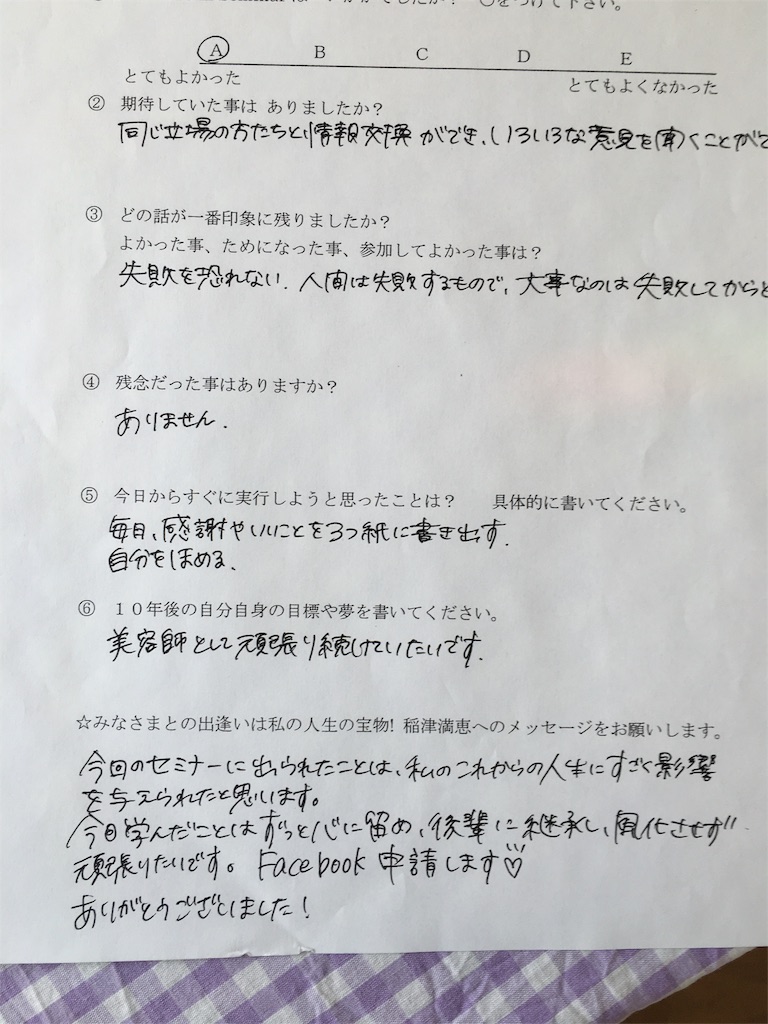 はいかがでしたか？ ○をつけて下さい。
A B C D E
とてもよかった とてもよくなかった
② 期待していた事は ありましたか？
同じ立場の方たちと情報交換ができ、いろいろな意見を聞くことがで
③ どの話が一番印象に残りましたか？
よかった事、ためになった事、参加してよかった事は？
失敗を恐れない. 人間は失敗するもので、大事なのは失敗してからと
④ 残念だった事はありますか？
ありません.
⑤ 今日からすぐに実行しようと思ったことは？ 具体的に書いてください。
毎日、感謝やいいことを3つ紙に書き出す.
自分をほめる、
⑥ １０年後の自分自身の目標や夢を書いてください。
美容師として頑張り続けていたいです.
☆みなさまとの出逢いは私の人生の宝物! 稲津満恵へのメッセージをお願いします。
今回のセミナーに出られたことは、私のこれからの人生にすごく影響
を与えられたと思います。
今日学んだことはずっと心に留め、後輩に継承し、風化させず
頑張りたいです。Facebook申請します♡
ありがとうございました！